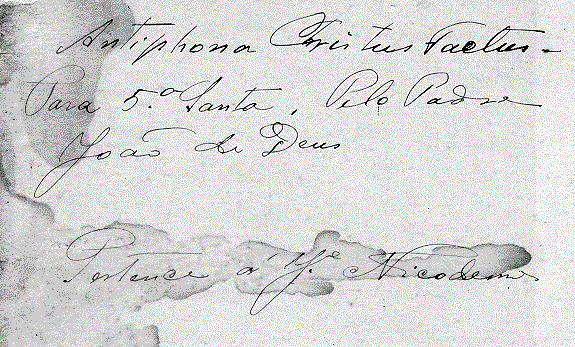 Antiphona Cristus Factus -
Para 5.a Santa, Pelo Padre
João de Deus
Pertence a' J.e Nicodemos